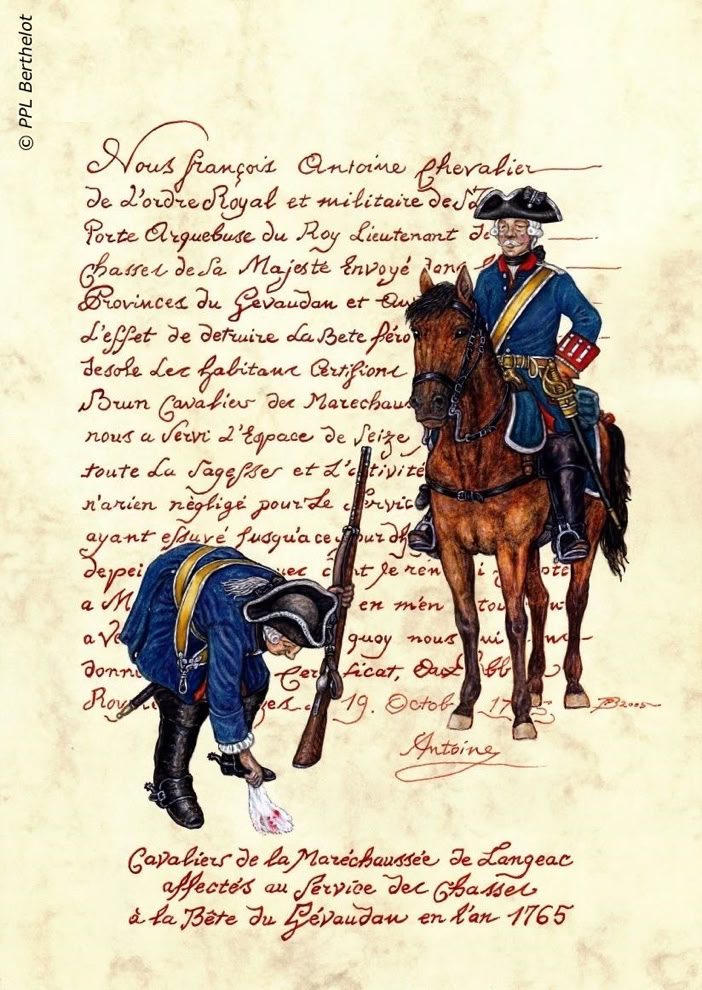 © PPL Berthelot
Nous françois Antoine Chevalier
de L'ordre Royal et militaire de St
Porte Arquebuse du Roy Lieutenant de
Chasses de Sa Majesté Envoyé dans
Provinces du Gevaudan et Auv
L'effet de detruire La Bete féro
desole Les habitans Certifions
Brun Cavalier des Marechaus
nous a Servi L'Espace de Seize
toute La Sagesses et L'activité
n'arien négligé pour Le Servic
ayant essuyé Jusqu'a ce jour
depei
a M en m'en tou
a ve quoy nous
donn Certificat,
Roy 19. Octob 17
2005
Antoine
Cavaliers de la Maréchaussée de Langeac
affectés au Service des Chasses
à la Bête du Gévaudan en l'an 1765